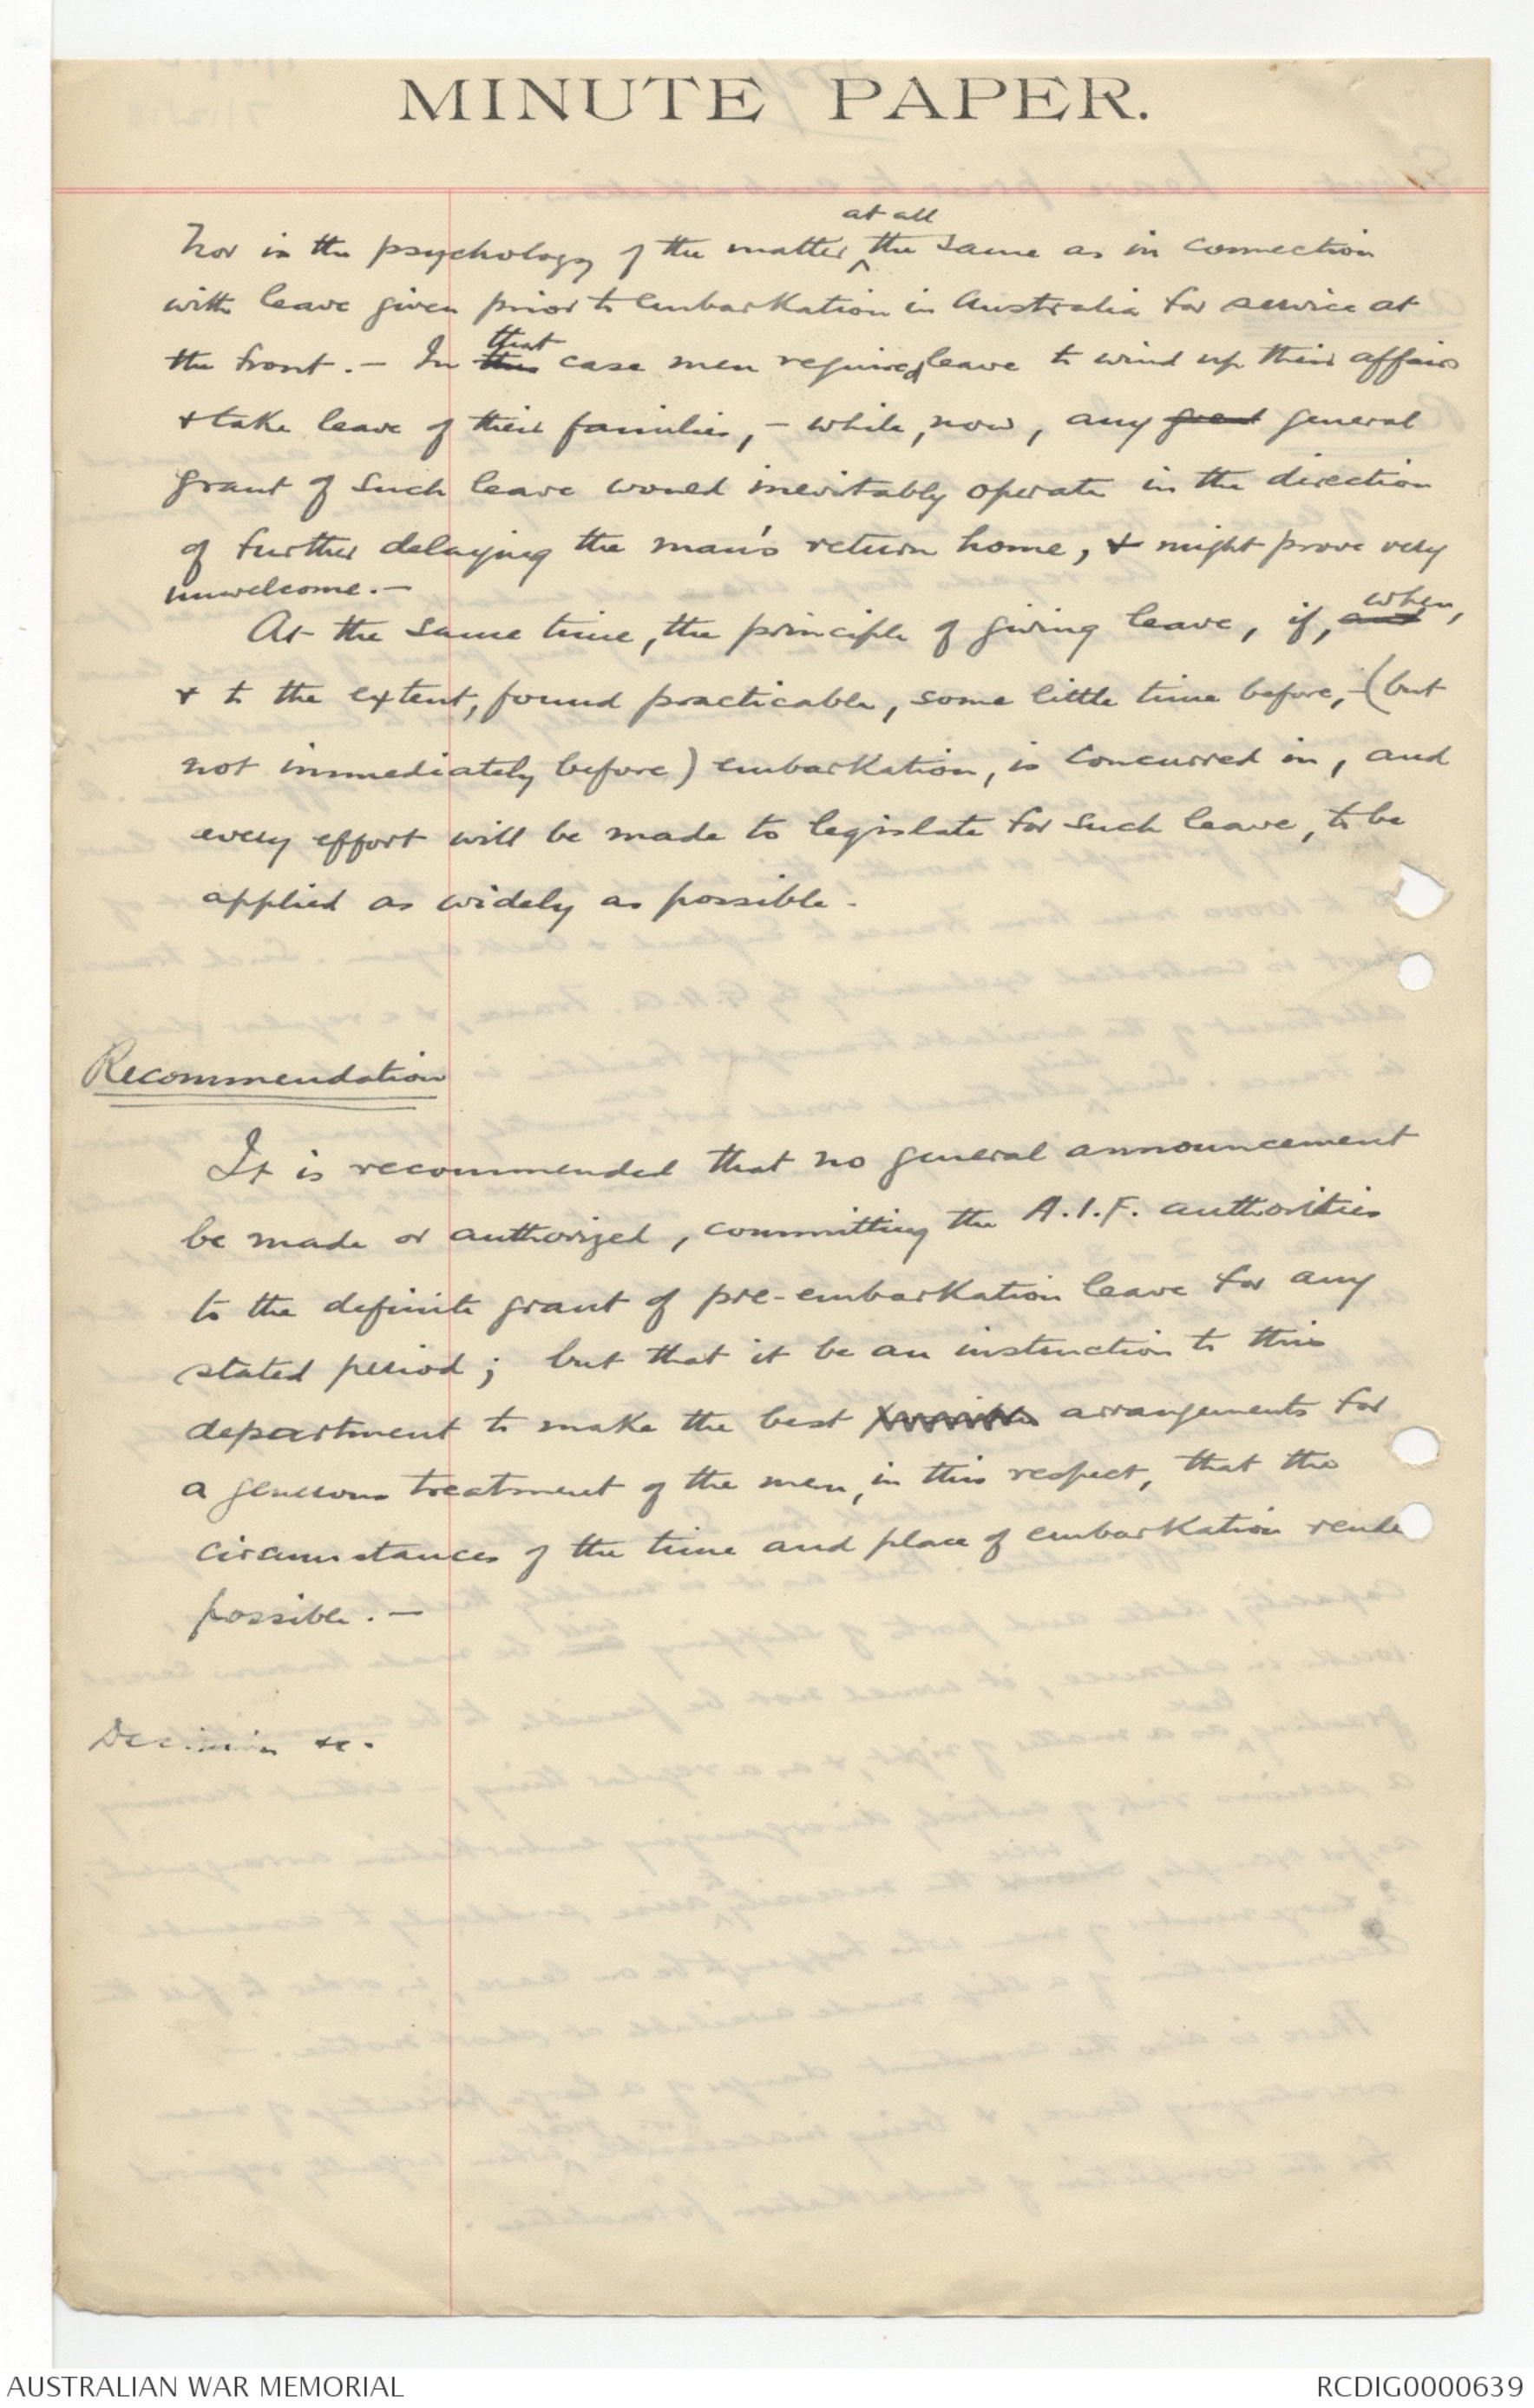 MINUTE PAPER.
at all
Nor is the psychology of the matter ^ the same as in connection
with leave given prior to embarkation in Australia for service at
that
the front. - In this case men required leave to wind up their affairs
& take leave of their families, - while, now, any great general
grant of such leave would inevitably operate in the direction
of further delaying the man's return home, & might prove very
unwelcome. -
when,
At the same time, the principle of giving leave, if, and
& to the extent, found practicable, some little time before, - (but
not immediately before) embarkation, is concurred in, and
every effort will be made to legislate for such leave, to be
applied as widely as possible.
Recommendation
It is recommended that no general announcement
be made or authorized, committing the A.I.F. authorities
to the definite grant of pre-embarkation leave for any
stated period; but that it be an instruction to this
department to make the best arrangements for
a generous treatment of the men, in this respect, that the
circumstances of the time and place of embarkation rende
possible. -
Decision &c.
AUSTRALIAN WAR MEMORIAL
RCDIG0000639